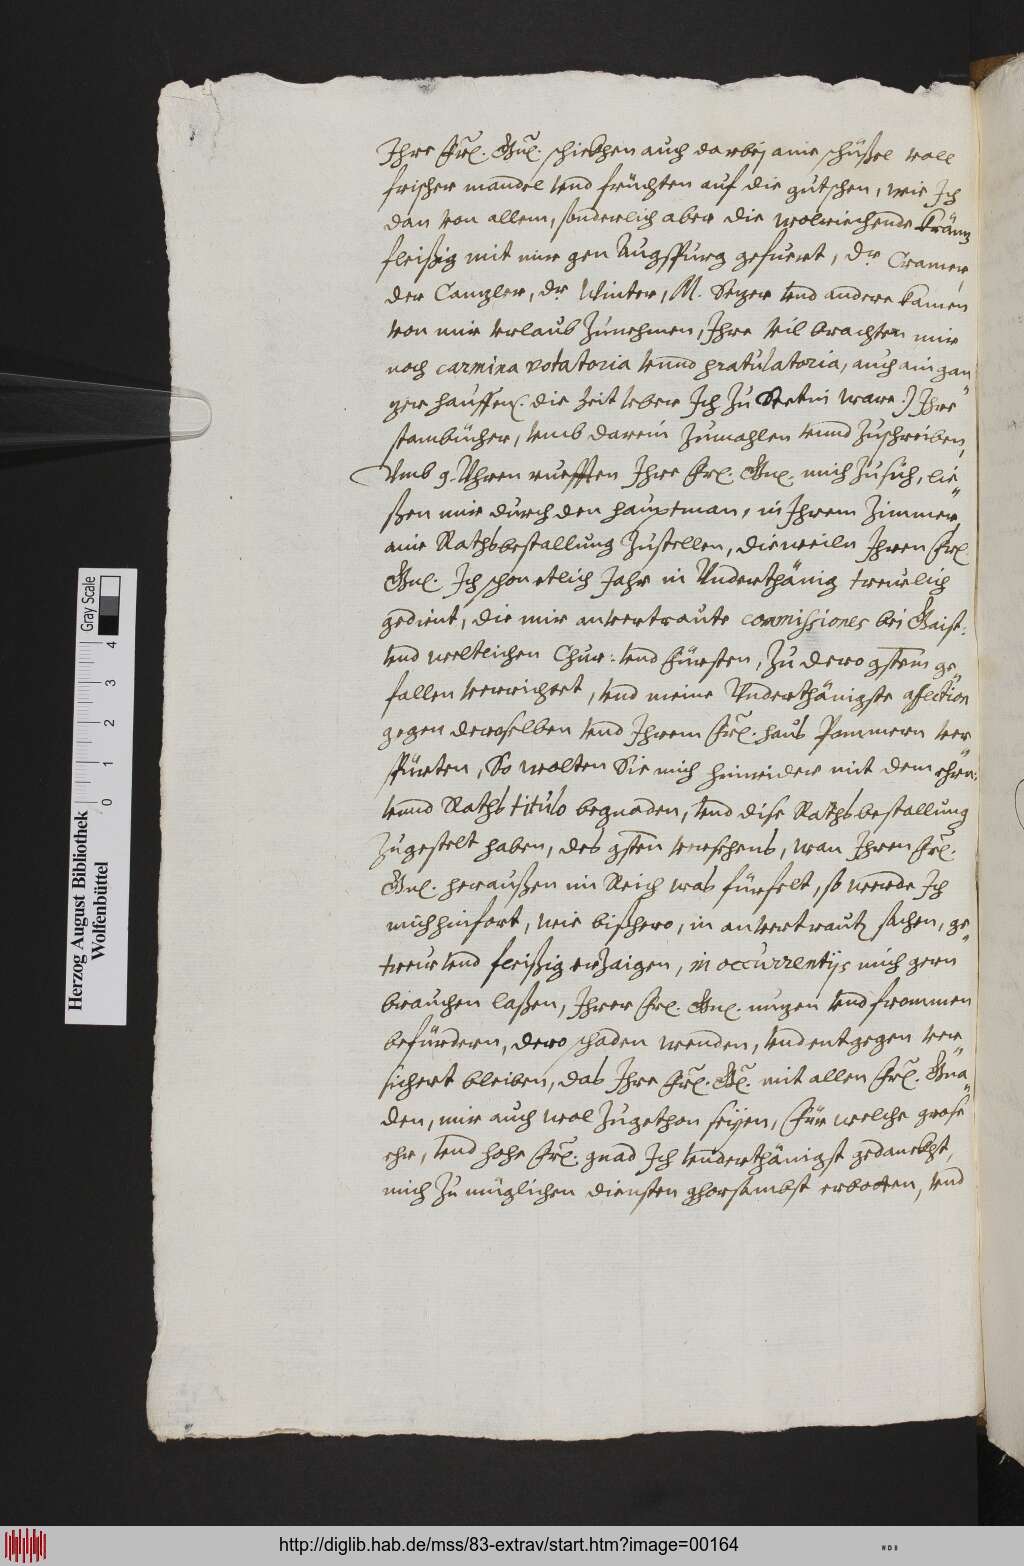 Ihre Frl. Gnl. schickhen auch darbej aine schüßel voll
frischer mandel vnd früchten auf die gutschen, wie Ich
dan von allem, sonderlich aber die wolriechende Kräntz
fleißig mit mir gen Augspurg gefuert, Dr. Cramer,
der Canzler, Dr. Winter, M. Sezer vnd andere kamen
von mir vrlaub Zunehmen, Ihre vil brachten mir
noch carmina votatoria vnnd gratulatoria, auch ain gan
zer hauffen (die Zeit vber Ich Zu Stettin ware) Ihre
stambücher, vmb darein Zumahlen vnnd Zuschreiben,
Vmb 9. Vhren ruefften Ihre Frl. Gnl. mich Zu sich, lie
ßen mir durch den hauptman, in Ihrem Zimmer,
aine Rathsbestallung Zustellen, dieweiln Ihren Frl.
Gnl. Ich schon etlich Jahr in Vnderthänig treulich
gedient, die mir anvertraute commissiones bei Gaist:
vnd weltlichen Chur: vnd Fürsten, Zu dero gstem ge
fallen verrichtet, vnd meine Vnderthänigste affection
gegen deroselben vnd Ihrem Frl. haus Pommern ver
spürten, So wolten Sie mich hinwider mit dem ehrn:
vnnd Raths titulo begnaden, vnd dise Rathsbestallung
Zugestelt haben, des gsten versehens, wan Ihren Frl.
Gnl. heraußen im Reich was fürfelt, so werde Ich
mich hinfort, wie bißhero, in anvertrautn sachen, ge
treu vnd fleißig erZaigen, in occurrentijs mich gern
brauchen laßen, Ihrer Frl. Gnl. nuzen vnd frommen
befürdern, dero schaden wenden, vnd entgegen ver
sichert bleiben, das Ihre Frl. Gl. mit allen Frl. Gna
den, mir auch wol Zugethon seijen, Für welche grose
ehr, vnd hohe Frl. gnad Ich vnderthänigst gedanckht,
mich Zu müglichen diensten ghorsambst erbotten, vnd
Herzog August Bibliothek
Wolfenbüttel
Gray Scale
0 1 2 3 4
http://diglib.hab.de/mss/83-extrav/start.htm?image=00164